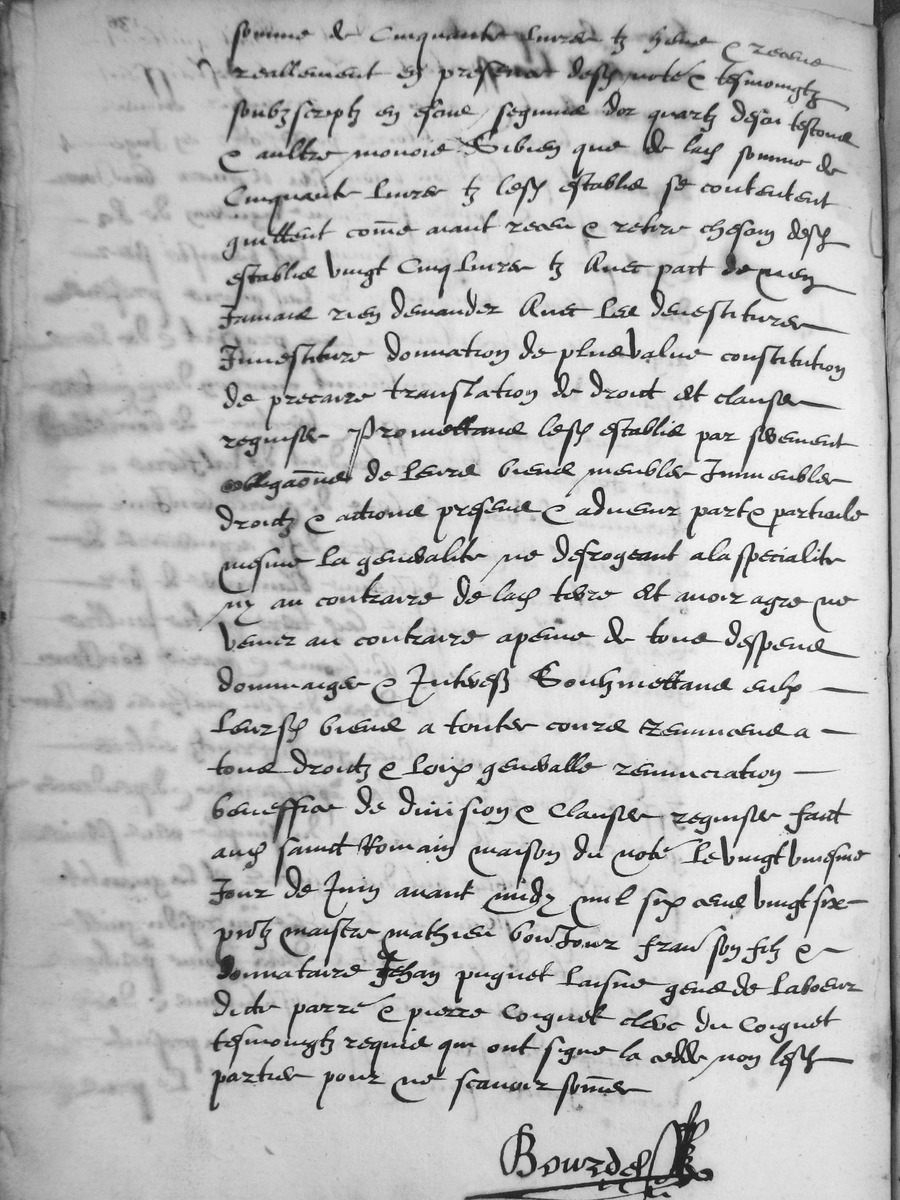 somme de Cinquante livres tz heue & receue
reallement en presence desd notere & tesmoingtz
soubzscriptz en escus segnins dor quartz descu testons
& aultre monoie Sibien que de lad somme de
Cinquante livres tz lesd establis se contentent
quittent come aiant receu & retire chescun desd
establis vingt Cinq livres tz Avec pact de nen
Jamais rien demander Avec les devestitures
Jnvestiture donnation de plusvalue constitution
de precaire translation de droict et clauses
requises Promettans lesd establis par serement
obligaone de leurs biens meubles Jmmeubles
droictz & actions presens & advenir part & particule
mesme la generalite ne desrogeant a la specialite
ny au contraire de lad terre et avoir agre ne
venir au contraire a peine de tous despens
dommaiges & Jnterestz Soubmettans eulx
leursd biens a toutes cours renuncens a
tous droictz & loix generalle renunciation
beneffice de division & Clauses requises faict
aud sainct Romain maison du notere le vingt uniesme
Jour de Juin avant midy mil six cens vingt six
pntz maistre mathieu bonJour fran son filz &
donnataire Jehan puguet laisne gens de laboeur
dicte parre & pierre Coignet clerc du Coignet
tesmoingtz requis qui ont signe la cedde non lesd
parties pour ne scavoir somes
Bourdel